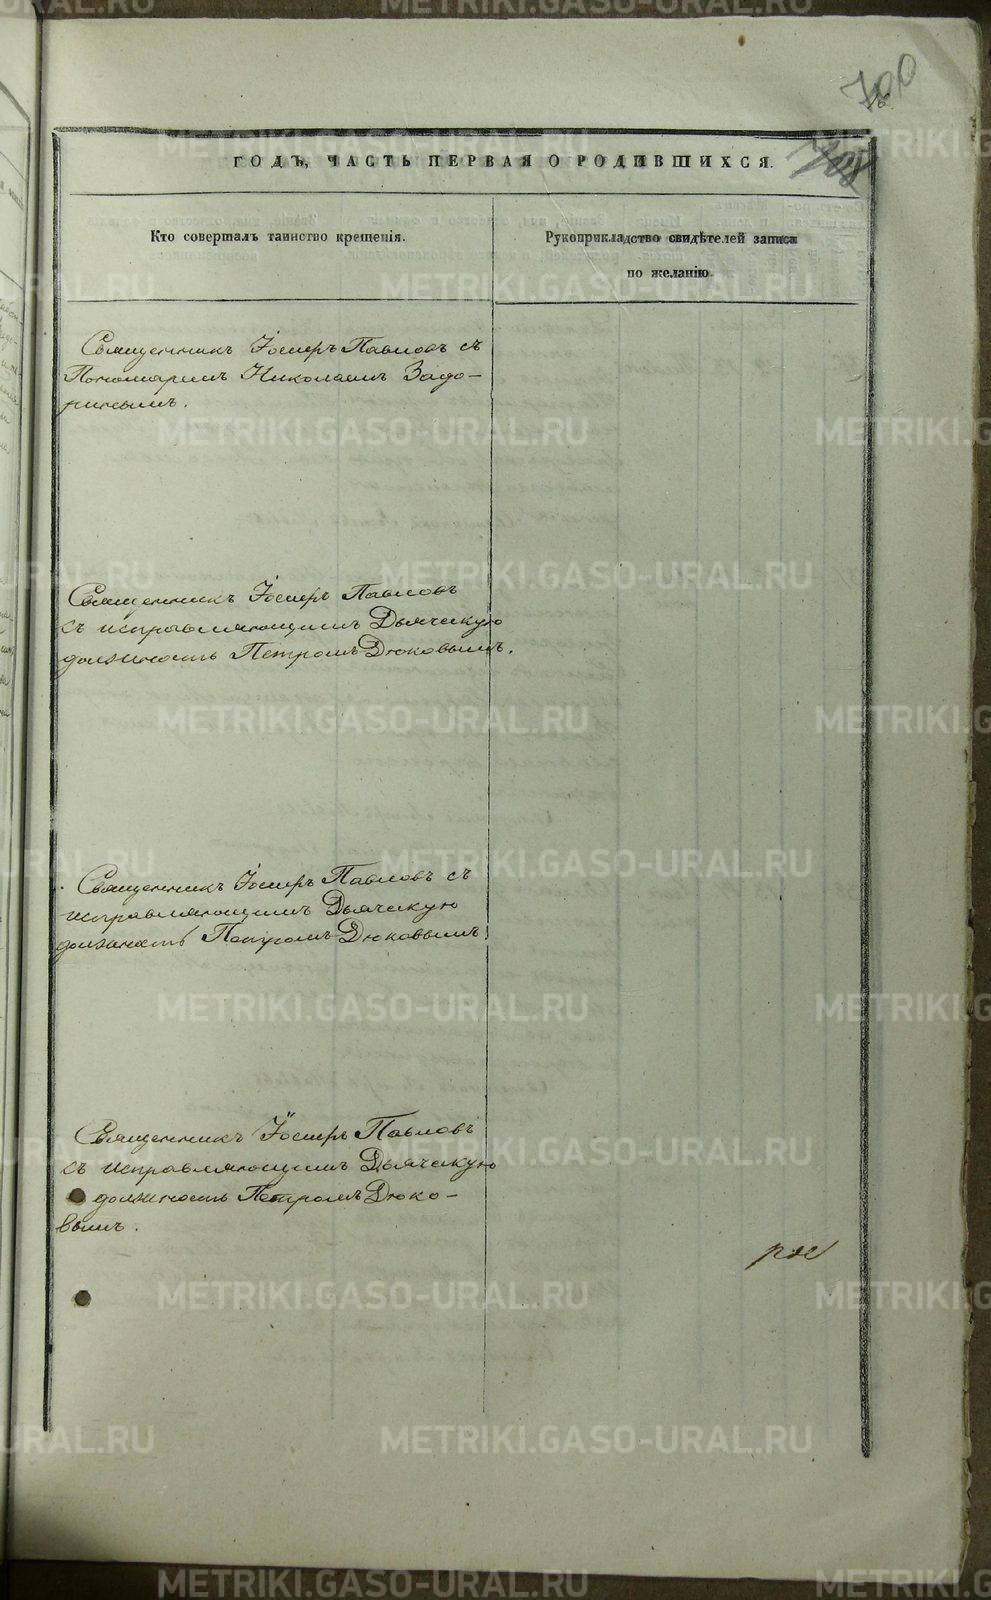 700
708
ГОДЪ, ЧАСТЬ ПЕРВАЯ О РОДИВШИХСЯ.
Кто совершалъ таинство крещенія.
Рукоприкладство свидѣтелей записи
по желанію.
Священникъ Іосифъ Павловъ съ
Пономаремъ Николаемъ Задо-
ринымъ.
Священникъ Іосифъ Павловъ
съ исправляющимъ Дьяческую
должность Петромъ Дюковымъ.
Священникъ Іосифъ Павловъ съ
исправляющимъ Дьяческую
должность Петромъ Дюковымъ
Священникъ Іосифъ Павловъ
съ исправляющимъ Дьяческую
должность Петромъ Дюко-
вымъ.
METRIKI.GASO-URAL.RU